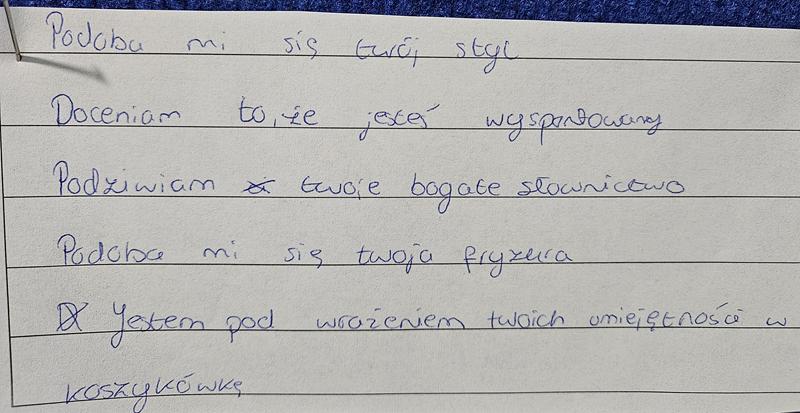 Podoba mi się twój styl
Doceniam to, że jesteś wysportowany
Podziwiam twoje bogate słownictwo
Podoba mi się twoja fryzura
Jestem pod wrażeniem twoich umiejętności w
koszykówkę